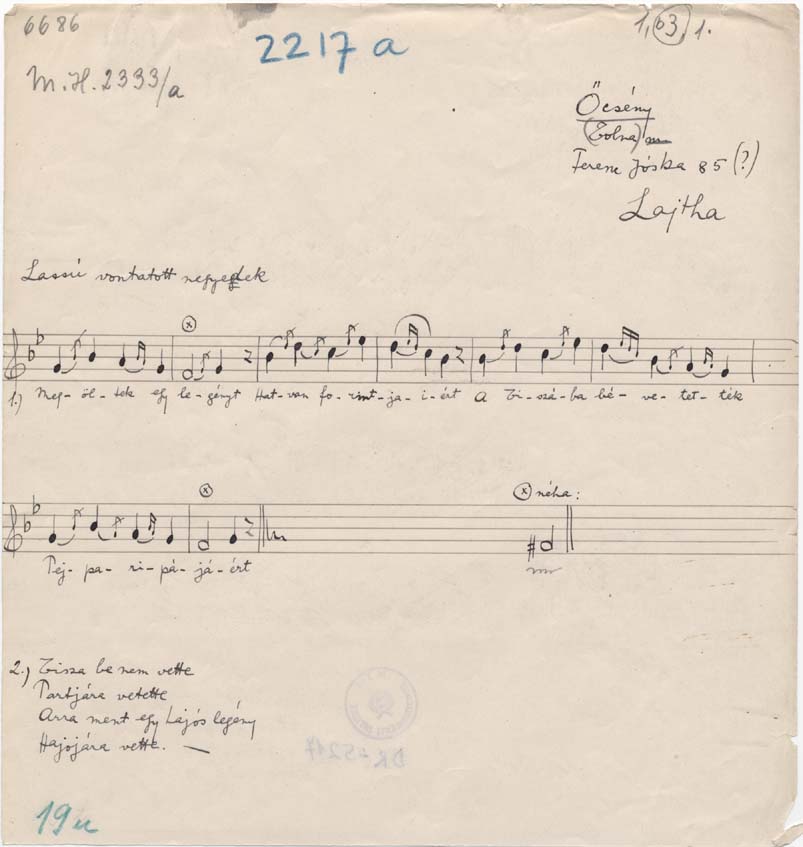 6686
2217 a
1, 03, 1.
M.H. 2333/a
Őcsény
(Tolna) m
Ferenc Jóska 85 (?)
Lajtha
Lassú vontatott negyedek
1.) Meg-öl-tek egy le-gényt Hat-van fo-rint-ja-i-ért A Ti-szá-ba bé-ve-tet-ték
néha:
Pej-pa-ri-pá-já-ért
2.) Tisza be nem vette
Partjára vetette
Arra ment egy hajós legény
Hajójára vette. —
DK-5217
19u